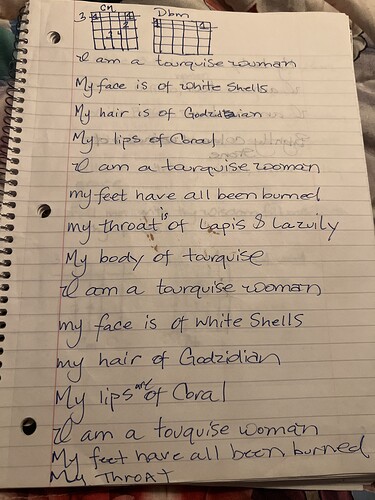 Cm Dbm
3
I am a tourquise woman
My face is of white shells
My hair is of Godzidian
My lips of Coral
I am a tourquise woman
my feet have all been burned
my throat is of Lapis & Lazuily
My body of tourquise
I am a tourquise woman
my face is of white shells
my hair of Godzidian
My lips are of Coral
I am a touquise woman
My feet have all been burned
My Throat